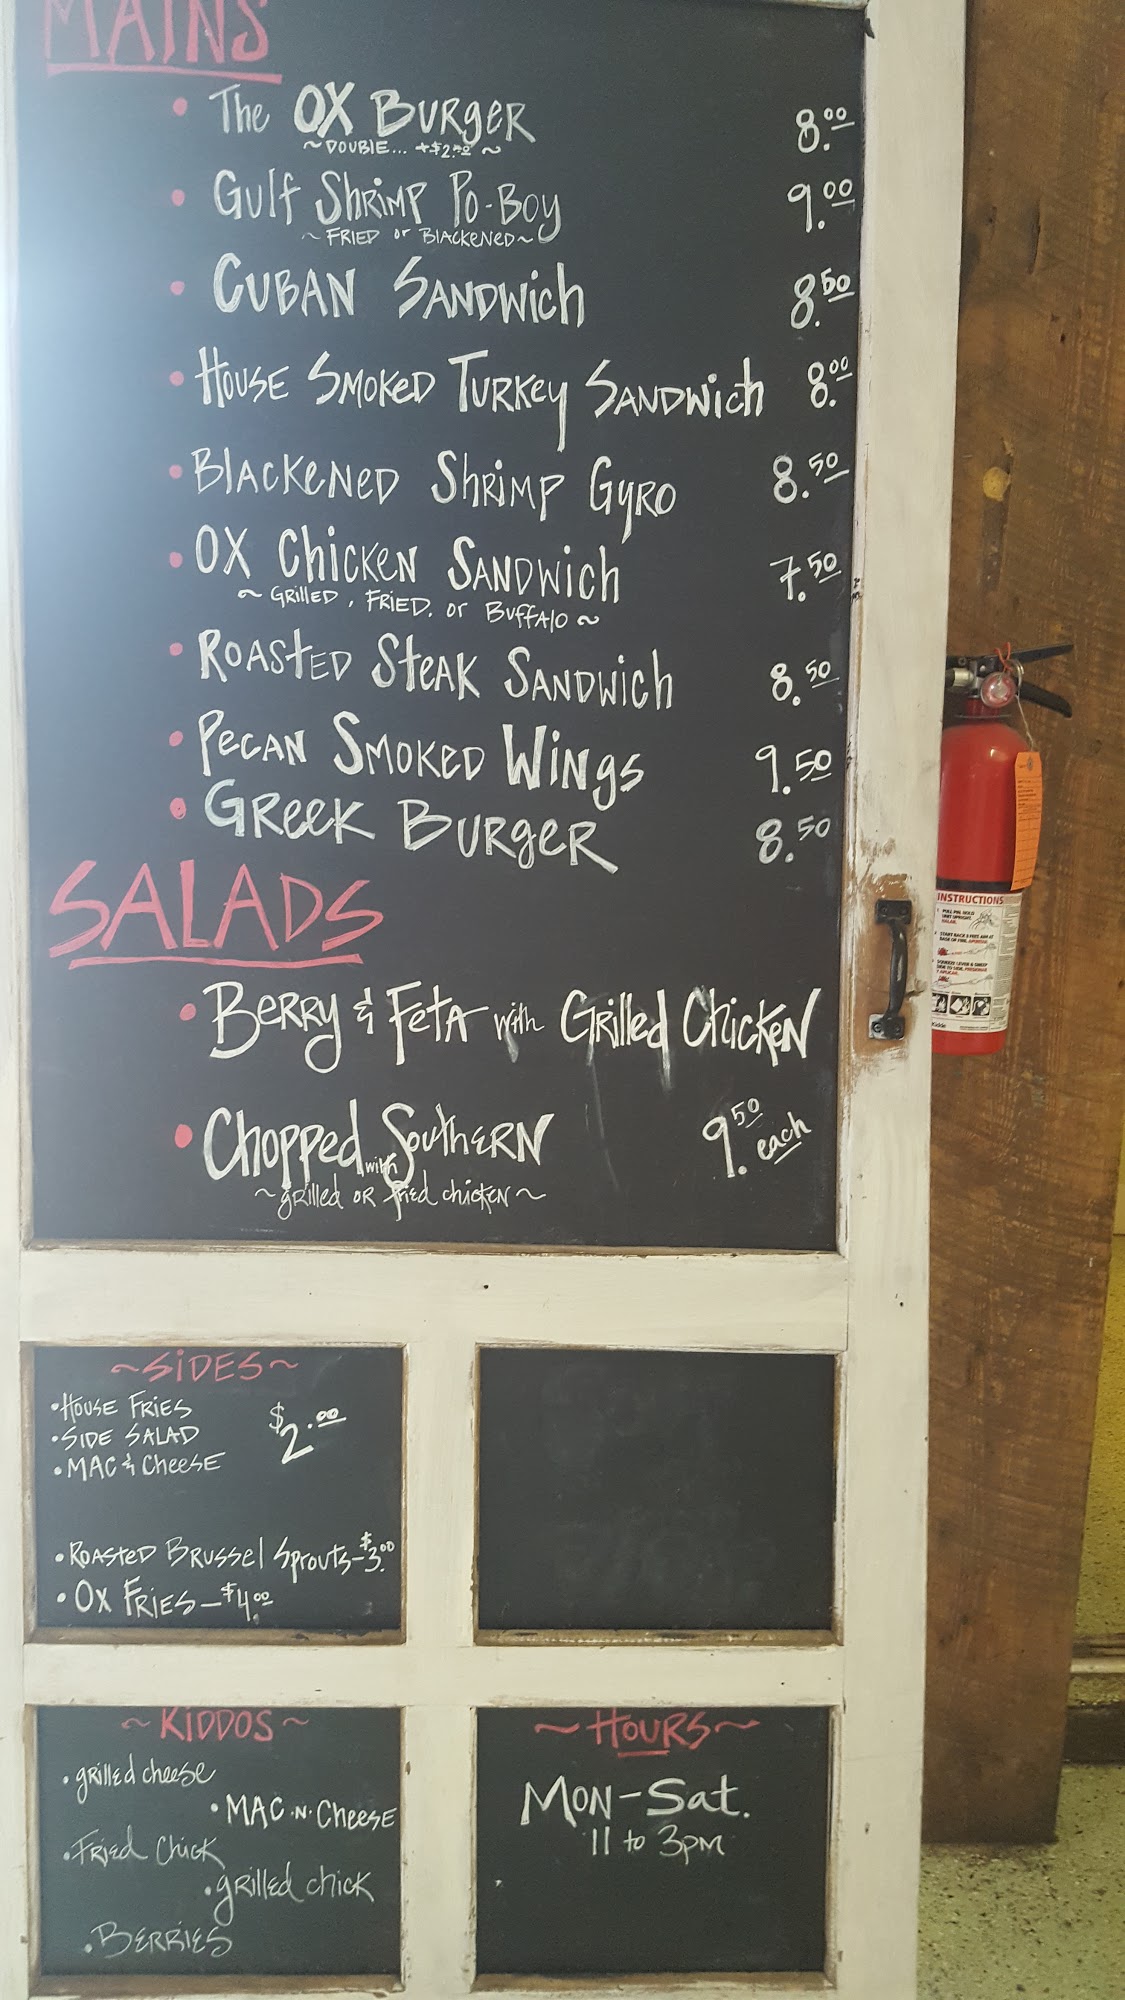 MAINS
• The OX Burger 8.00
~ Double... +$2.00 ~
• Gulf Shrimp Po-Boy 9.00
~ Fried or Blackened ~
• Cuban Sandwich 8.50
• House Smoked Turkey Sandwich 8.00
• Blackened Shrimp Gyro 8.50
• OX Chicken Sandwich 7.50
~ Grilled, Fried, or Buffalo ~
• Roasted Steak Sandwich 8.50
• Pecan Smoked Wings 9.50
• Greek Burger 8.50
SALADS
• Berry & Feta with Grilled Chicken
• Chopped Southern 9.50 each
with
~ grilled or fried chicken ~
~ SIDES ~
• House Fries
• Side Salad $2.00
• Mac & Cheese
• Roasted Brussel Sprouts - $3.00
• Ox Fries - $4.00
~ KIDDOS ~
• grilled cheese
• Mac-N-Cheese
• Fried Chick
• grilled chick
• Berries
~ HOURS ~
Mon - Sat.
11 to 3pm
INSTRUCTIONS
Kidde